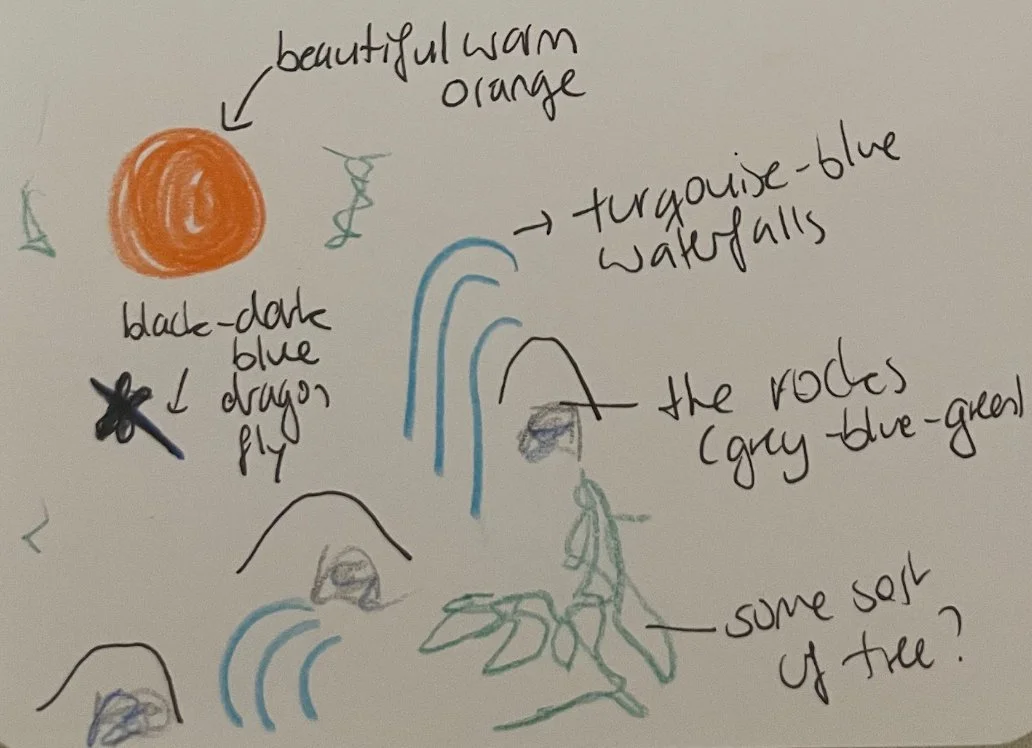 beautiful warm
orange
turqouise-blue
waterfalls
black-dark
blue
dragon
fly
the rocks
(grey-blue-green)
some sort
of tree?